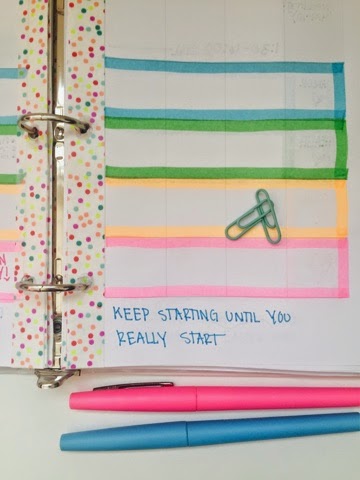 KEEP STARTING UNTIL YOU
REALLY START